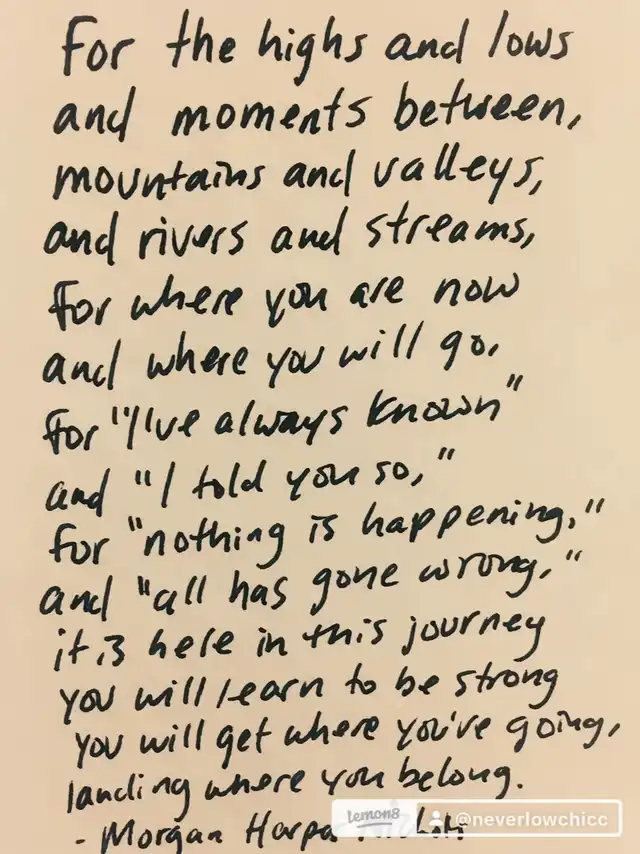 For the highs and lows
and moments between,
mountains and valleys,
and rivers and streams,
for where you are now
and where you will go,
for "I've always known"
and "I told you so,"
for "nothing is happening,"
and "all has gone wrong,"
it is here in this journey
you will learn to be strong
you will get where you're going,
landing where you belong.
- Morgan Harper
lemon8 @neverlowchicc